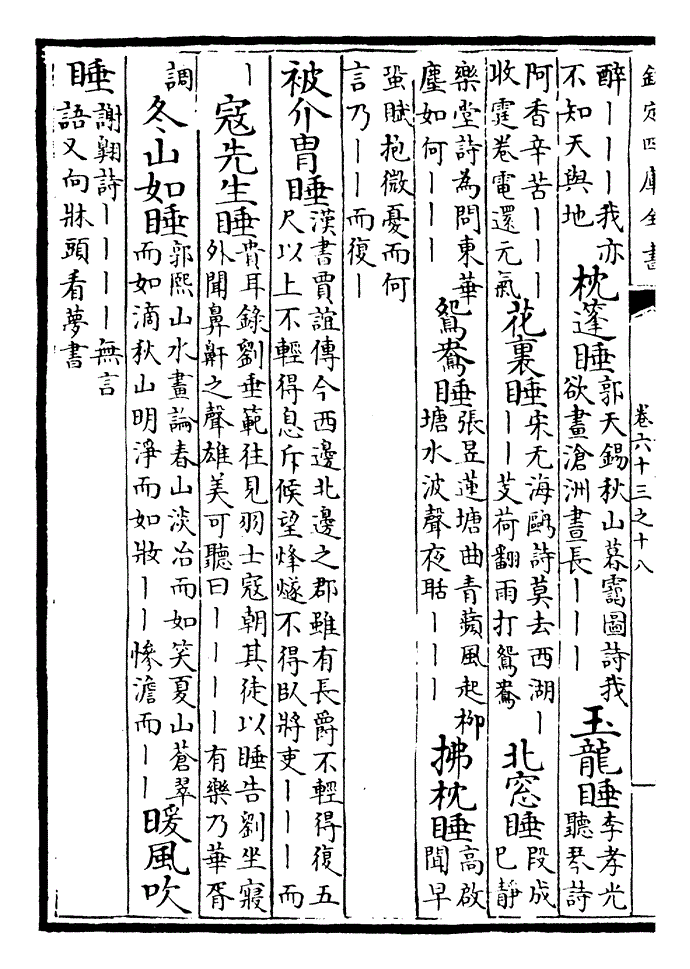 欽定四庫全書 卷六十三之十八
醉丨丨丨我亦
不知天與地
枕蓬睡
郭天錫秋山暮靄圖詩我
欲畫滄洲晝長丨丨丨
玉龍睡
李孝光
聽琴詩
阿香辛苦丨丨丨
收霆卷電還元氣
花裏睡
宋无海鷗詩莫去西湖丨
丨丨芰荷翻雨打鴛鴦
北窓睡
段成
已靜
樂堂詩為問東華
塵如何丨丨丨
鴛鴦睡
張昱蓮塘曲青蘋風起柳
塘水波聲夜聒丨丨丨
拂枕睡
高啟
聞早
蛩賦抱微憂而何
言乃丨丨而復丨
被介胄睡
漢書賈誼傳今西邊北邊之郡雖有長爵不輕得復五
尺以上不輕得息斥候望烽燧不得臥將吏丨丨丨而
丨
寇先生睡
貴耳錄劉垂範往見羽士寇朝其徒以睡告劉坐寢
外聞鼻鼾之聲雄美可聽曰丨丨丨丨有樂乃華胥
調
冬山如睡
郭熙山水畫論春山淡冶而如笑夏山蒼翠
而如滴秋山明淨而如妝丨丨慘澹而丨丨
暖風吹
睡
謝翺詩丨丨丨丨無言
語又向牀頭看夢書